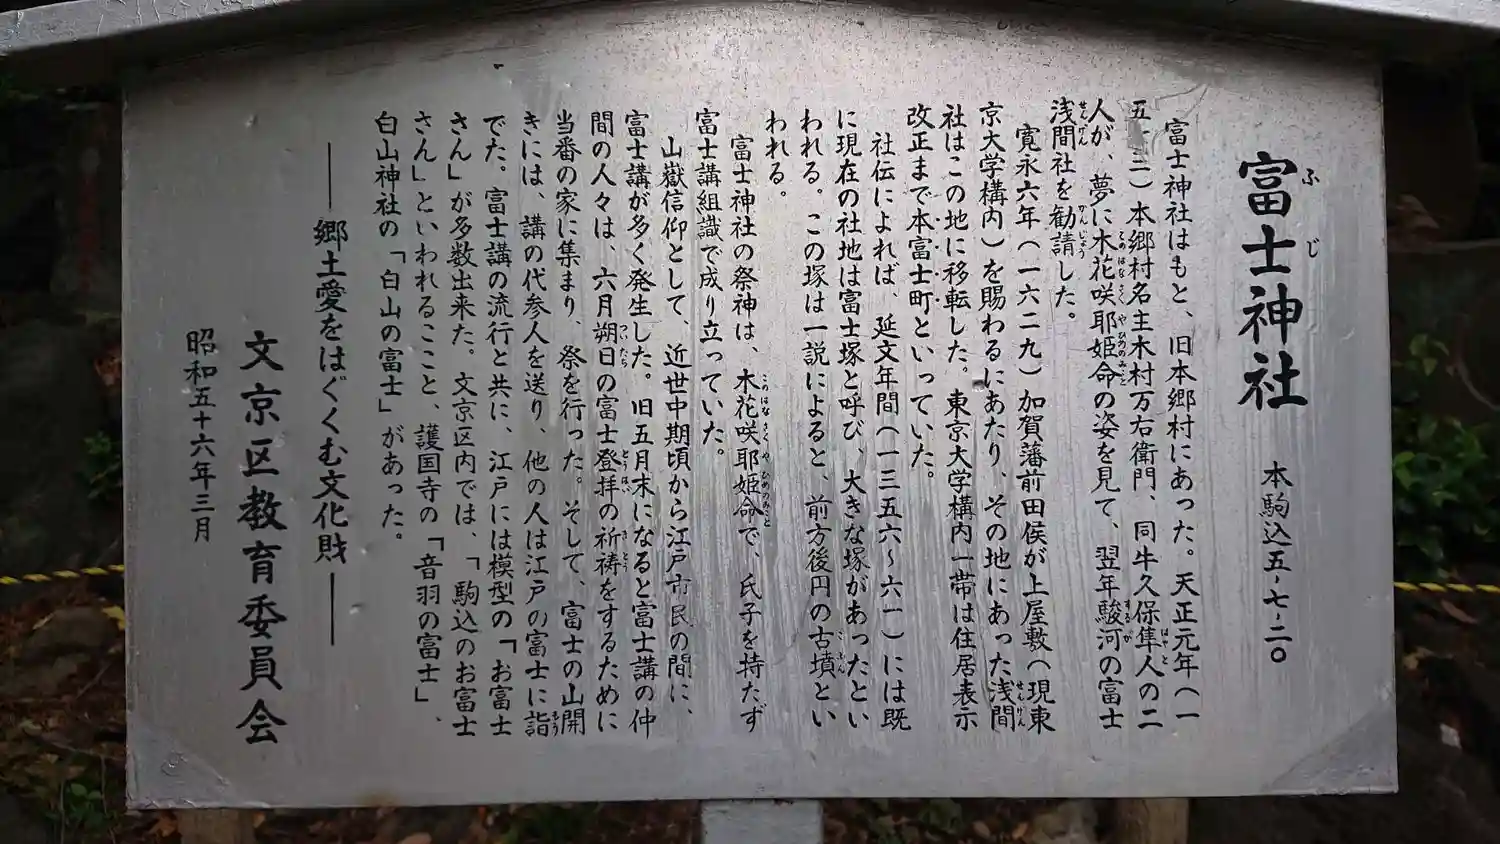 富士神社 本駒込五-七-二〇
ふじ
富士神社はもと、旧本郷村にあった。天正元年(一
五 三)本郷村名主木村万右衛門、同牛久保隼人の二
人が、夢に木花咲耶姫命の姿を見て、翌年駿河の富士
浅間社を勧請した。
寛永六年(一六二九)加賀藩前田侯が上屋敷(現東
京大学構内)を賜わるにあたり、その地にあった浅間
社はこの地に移転した。東京大学構内一帯は住居表示
改正まで本富士町といっていた。
社伝によれば、延文年間(一三五六〜六一)には既
に現在の社地は富士塚と呼び、大きな塚があったとい
われる。この塚は一説によると、前方後円の古墳とい
われる。
富士神社の祭神は、木花咲耶姫命で、氏子を持たず
富士講組識で成り立っていた。
山嶽信仰として、近世中期頃から江戸市民の間に、
富士講が多く発生した。旧五月末になると富士講の仲
間の人々は、六月朔日の富士登拝の祈祷をするために
当番の家に集まり、祭を行った。そして、富士の山開
きには、講の代参人を送り、他の人は江戸の富士に詣
でた。富士講の流行と共に、江戸には模型の「お富士
さん」が多数出来た。文京区内では、「駒込のお富士
さん」といわれるここと、護国寺の「音羽の富士」、
白山神社の「白山の富士」があった。
――郷土愛をはぐくむ文化財――
文京区教育委員会
昭和五十六年三月